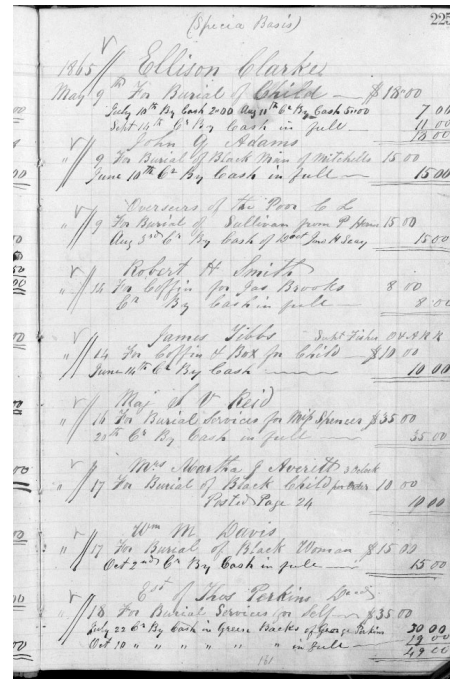 (Specia Basis)
225
1865 Ellison Clarke
May 9th For Burial of Child — $18.00
July 10th By Cash 2.00 Aug 11th Cr By Cash 5.00 7 00
Sept 14th Cr By Cash in full — 11 00
18 00
John G Adams
" 9 For Burial of Black Man of Mitchells 15.00
June 10th Cr By Cash in full — 15 00
Overseers of the Poor C L
" 9 For Burial of Sullivan from P House 15.00
Aug 3rd Cr By Cash of Jno H Seay 15 00
Robert H Smith
" 14 For Coffin for Jas Brooks 8 00
Cr By Cash in full — 8 00
James Tibbs Supt Fisher O & A R R
" 14 For Coffin & Box for Child — $10.00
June 14th Cr By Cash — 10 00
Maj S V Reid
" 16 For Burial Services for Miss Spencer $35.00
20th Cr By Cash in full — 35.00
Mrs Martha J Averett
" 17 For Burial of Black Child per order 10.00
Posted Page 24 10 00
Wm M. Davis
" 17 For Burial of Black Woman $15.00
Oct 2nd Cr By Cash in full — 15 00
Est of Thos Perkins Decd
" 18 For Burial Services for Self — $35.00
July 22 Cr By Cash in Green Backs of George Perkins 30 00
Oct 10 " " " " " " in full — 19 00
49 00
161